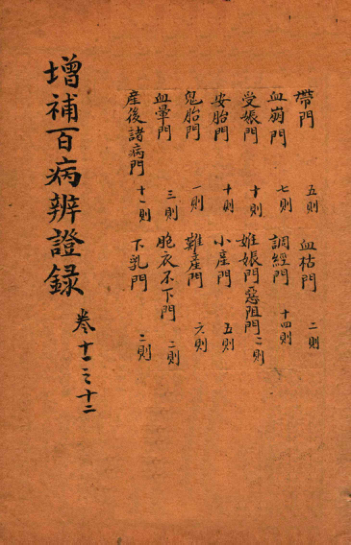 帶門 五則 血枯門 二則
血崩門 七則 調經門 十四則
受娠門 十則 姙娠門惡阻門 二則
安胎門 十則 小産門 五則
鬼胎門 一則 難産門 六則
血暈門 三則 胞衣不下門 二則
産後諸病門 十一則 下乳門 二則
增補百病辨證録 卷十一之十二